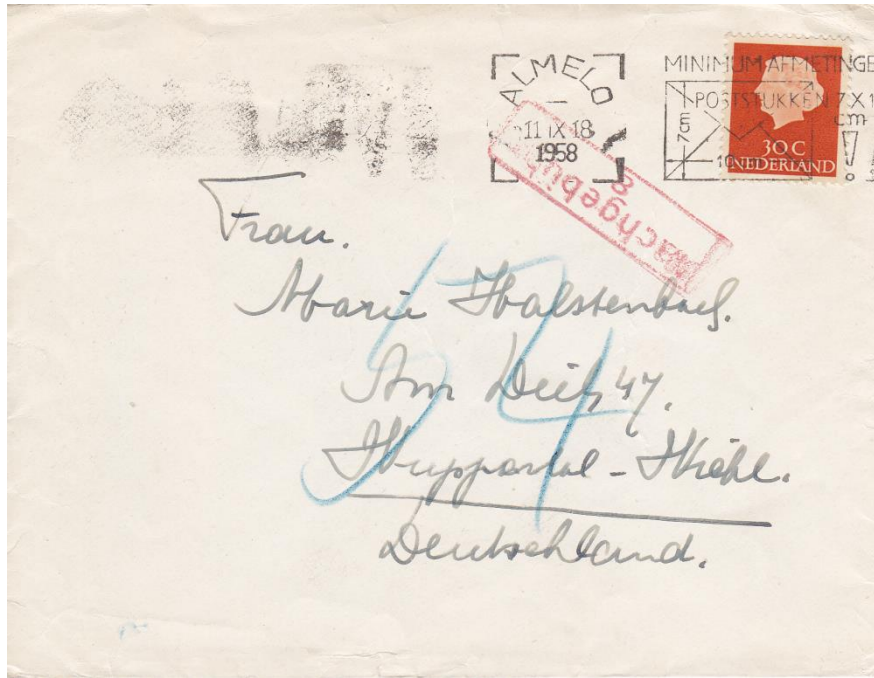 ALMELO
11 IX 18
1958
MINIMUM AFMETINGE
POSTSTUKKEN 7 X 1
cm
7 cm
10
30 C
NEDERLAND
Nachgebühr
Frau.
Marie Halstenbach.
Am Deich 47.
Wuppertal - Wichl.
Deutschland.
54